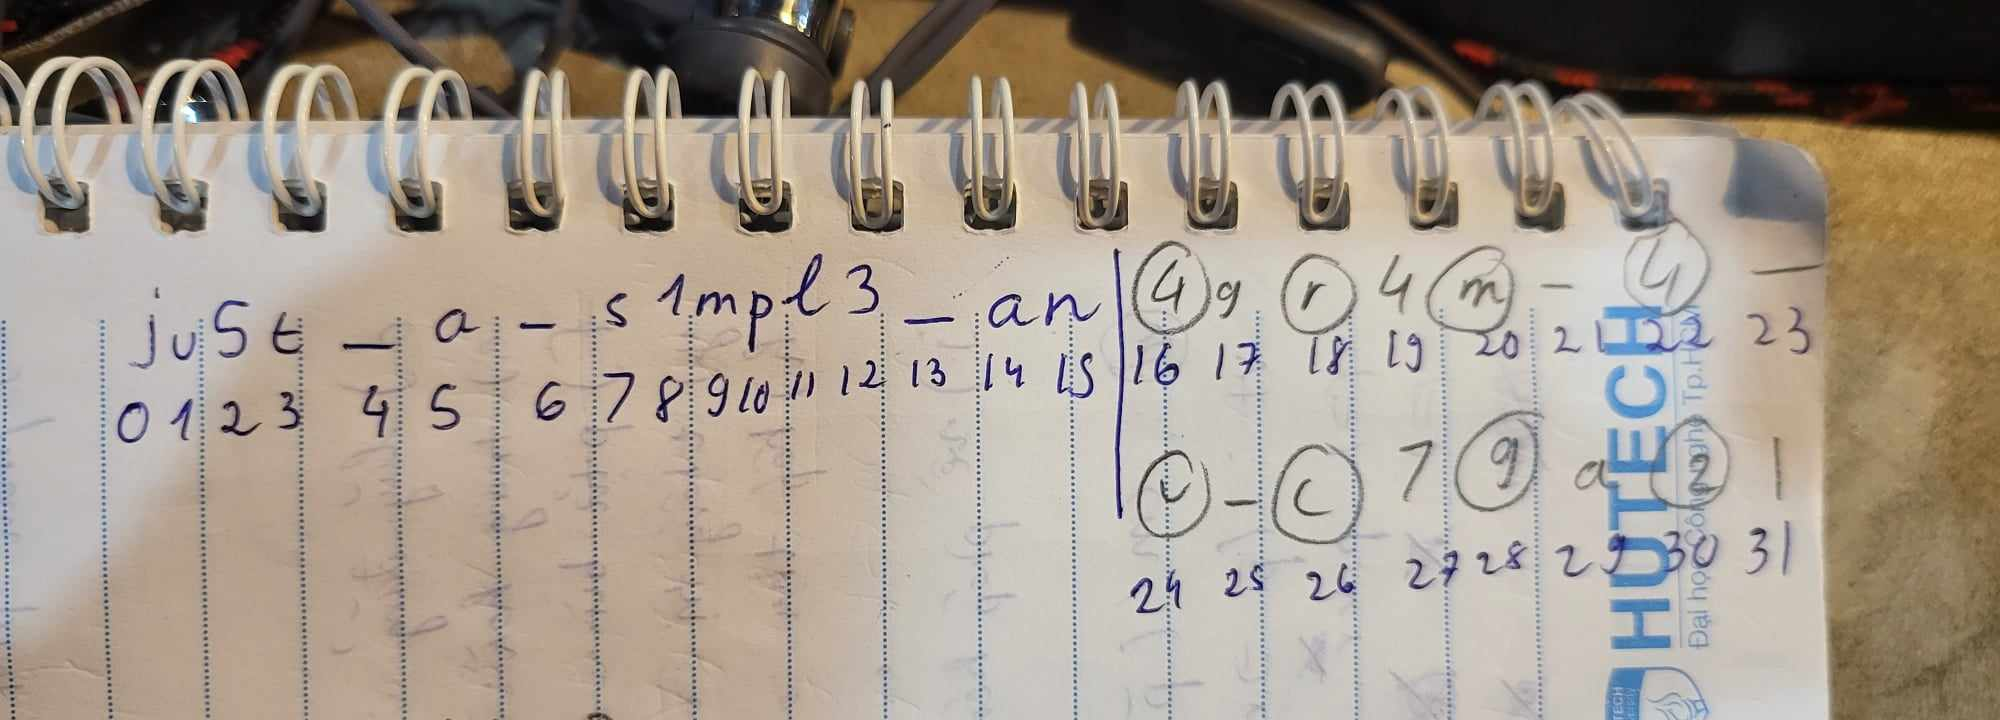 juSt_a_s1mpl3_an4gr4m_4_
0 1 2 3 4 5 6 7 8 9 10 11 12 13 14 15 16 17 18 19 20 21 22 23
u_c79a21
24 25 26 27 28 29 30 31
HUTECH
Đại học Công nghệ Tp.HCM